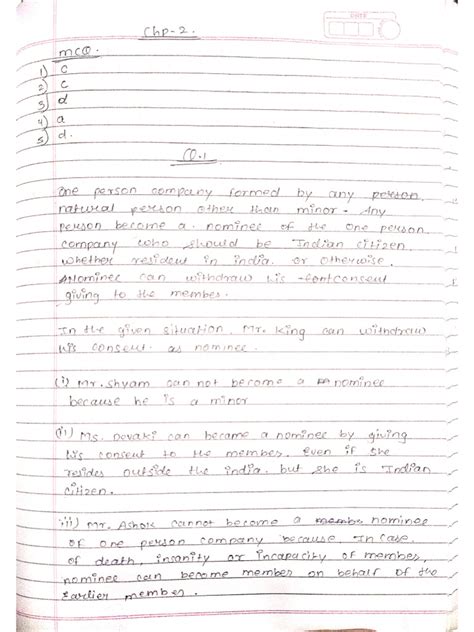 Chp-2.
DATE
MCQ.
1) c
2) c
3) d
4) a
5) d.
Q.1
One person company formed by any person
natural person other than minor. Any
person become a nominee of the one person
company who should be Indian citizen
whether resident in india or otherwise.
Nominee can withdraw his consent
giving to the member.
In the given situation, Mr. King can withdraw
his consent as nominee.
(i) Mr. Shyam can not become a nominee
because he is a minor
(ii) Ms. Devaki can became a nominee by giving
his consent to the member. Even if she
resides outside the india. but she is Indian
citizen.
iii) Mr. Ashok cannot become a membe nominee
of one person company because, In case
of death, insanity or incapacity of member,
nominee can become member on behalf of the
Earlier member.